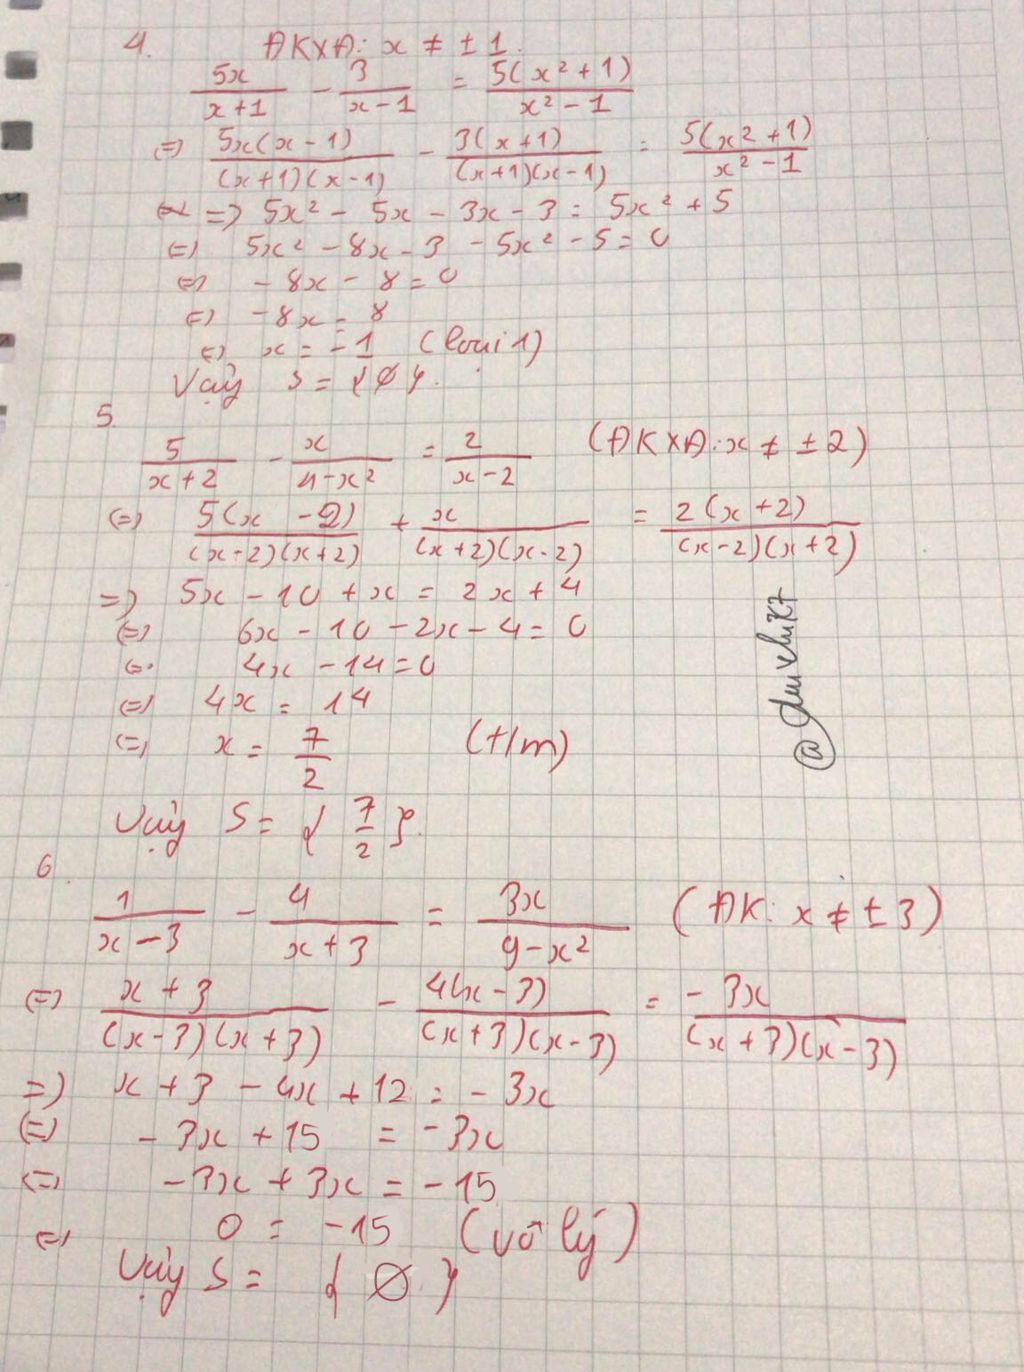 4. ĐKXĐ: x ≠ ± 1.
5x/(x+1) - 3/(x-1) = 5(x²+1)/(x²-1)
(=) 5x(x-1)/((x+1)(x-1)) - 3(x+1)/((x+1)(x-1)) = 5(x²+1)/(x²-1)
=) 5x² - 5x - 3x - 3 = 5x² + 5
(=) 5x² - 8x - 3 - 5x² - 5 = 0
(=) - 8x - 8 = 0
(=) -8x = 8
(=) x = -1 (loại)
Vậy S = {∅}.
5.
5/(x+2) - x/(4-x²) = 2/(x-2) (ĐKXĐ: x ≠ ± 2)
(=) 5(x-2)/((x-2)(x+2)) + x/((x+2)(x-2)) = 2(x+2)/((x-2)(x+2))
=) 5x - 10 + x = 2x + 4
(=) 6x - 10 - 2x - 4 = 0
(=) 4x - 14 = 0
(=) 4x = 14
(=) x = 7/2 (t/m)
Vậy S = {7/2}.
6.
1/(x-3) - 4/(x+3) = 3x/(9-x²) (ĐK: x ≠ ± 3)
(=) (x+3)/((x-3)(x+3)) - 4(x-3)/((x+3)(x-3)) = -3x/((x+3)(x-3))
=) x + 3 - 4x + 12 = - 3x
(=) - 3x + 15 = - 3x
(=) -3x + 3x = - 15
(=) 0 = -15 (vô lý)
Vậy S = {∅}